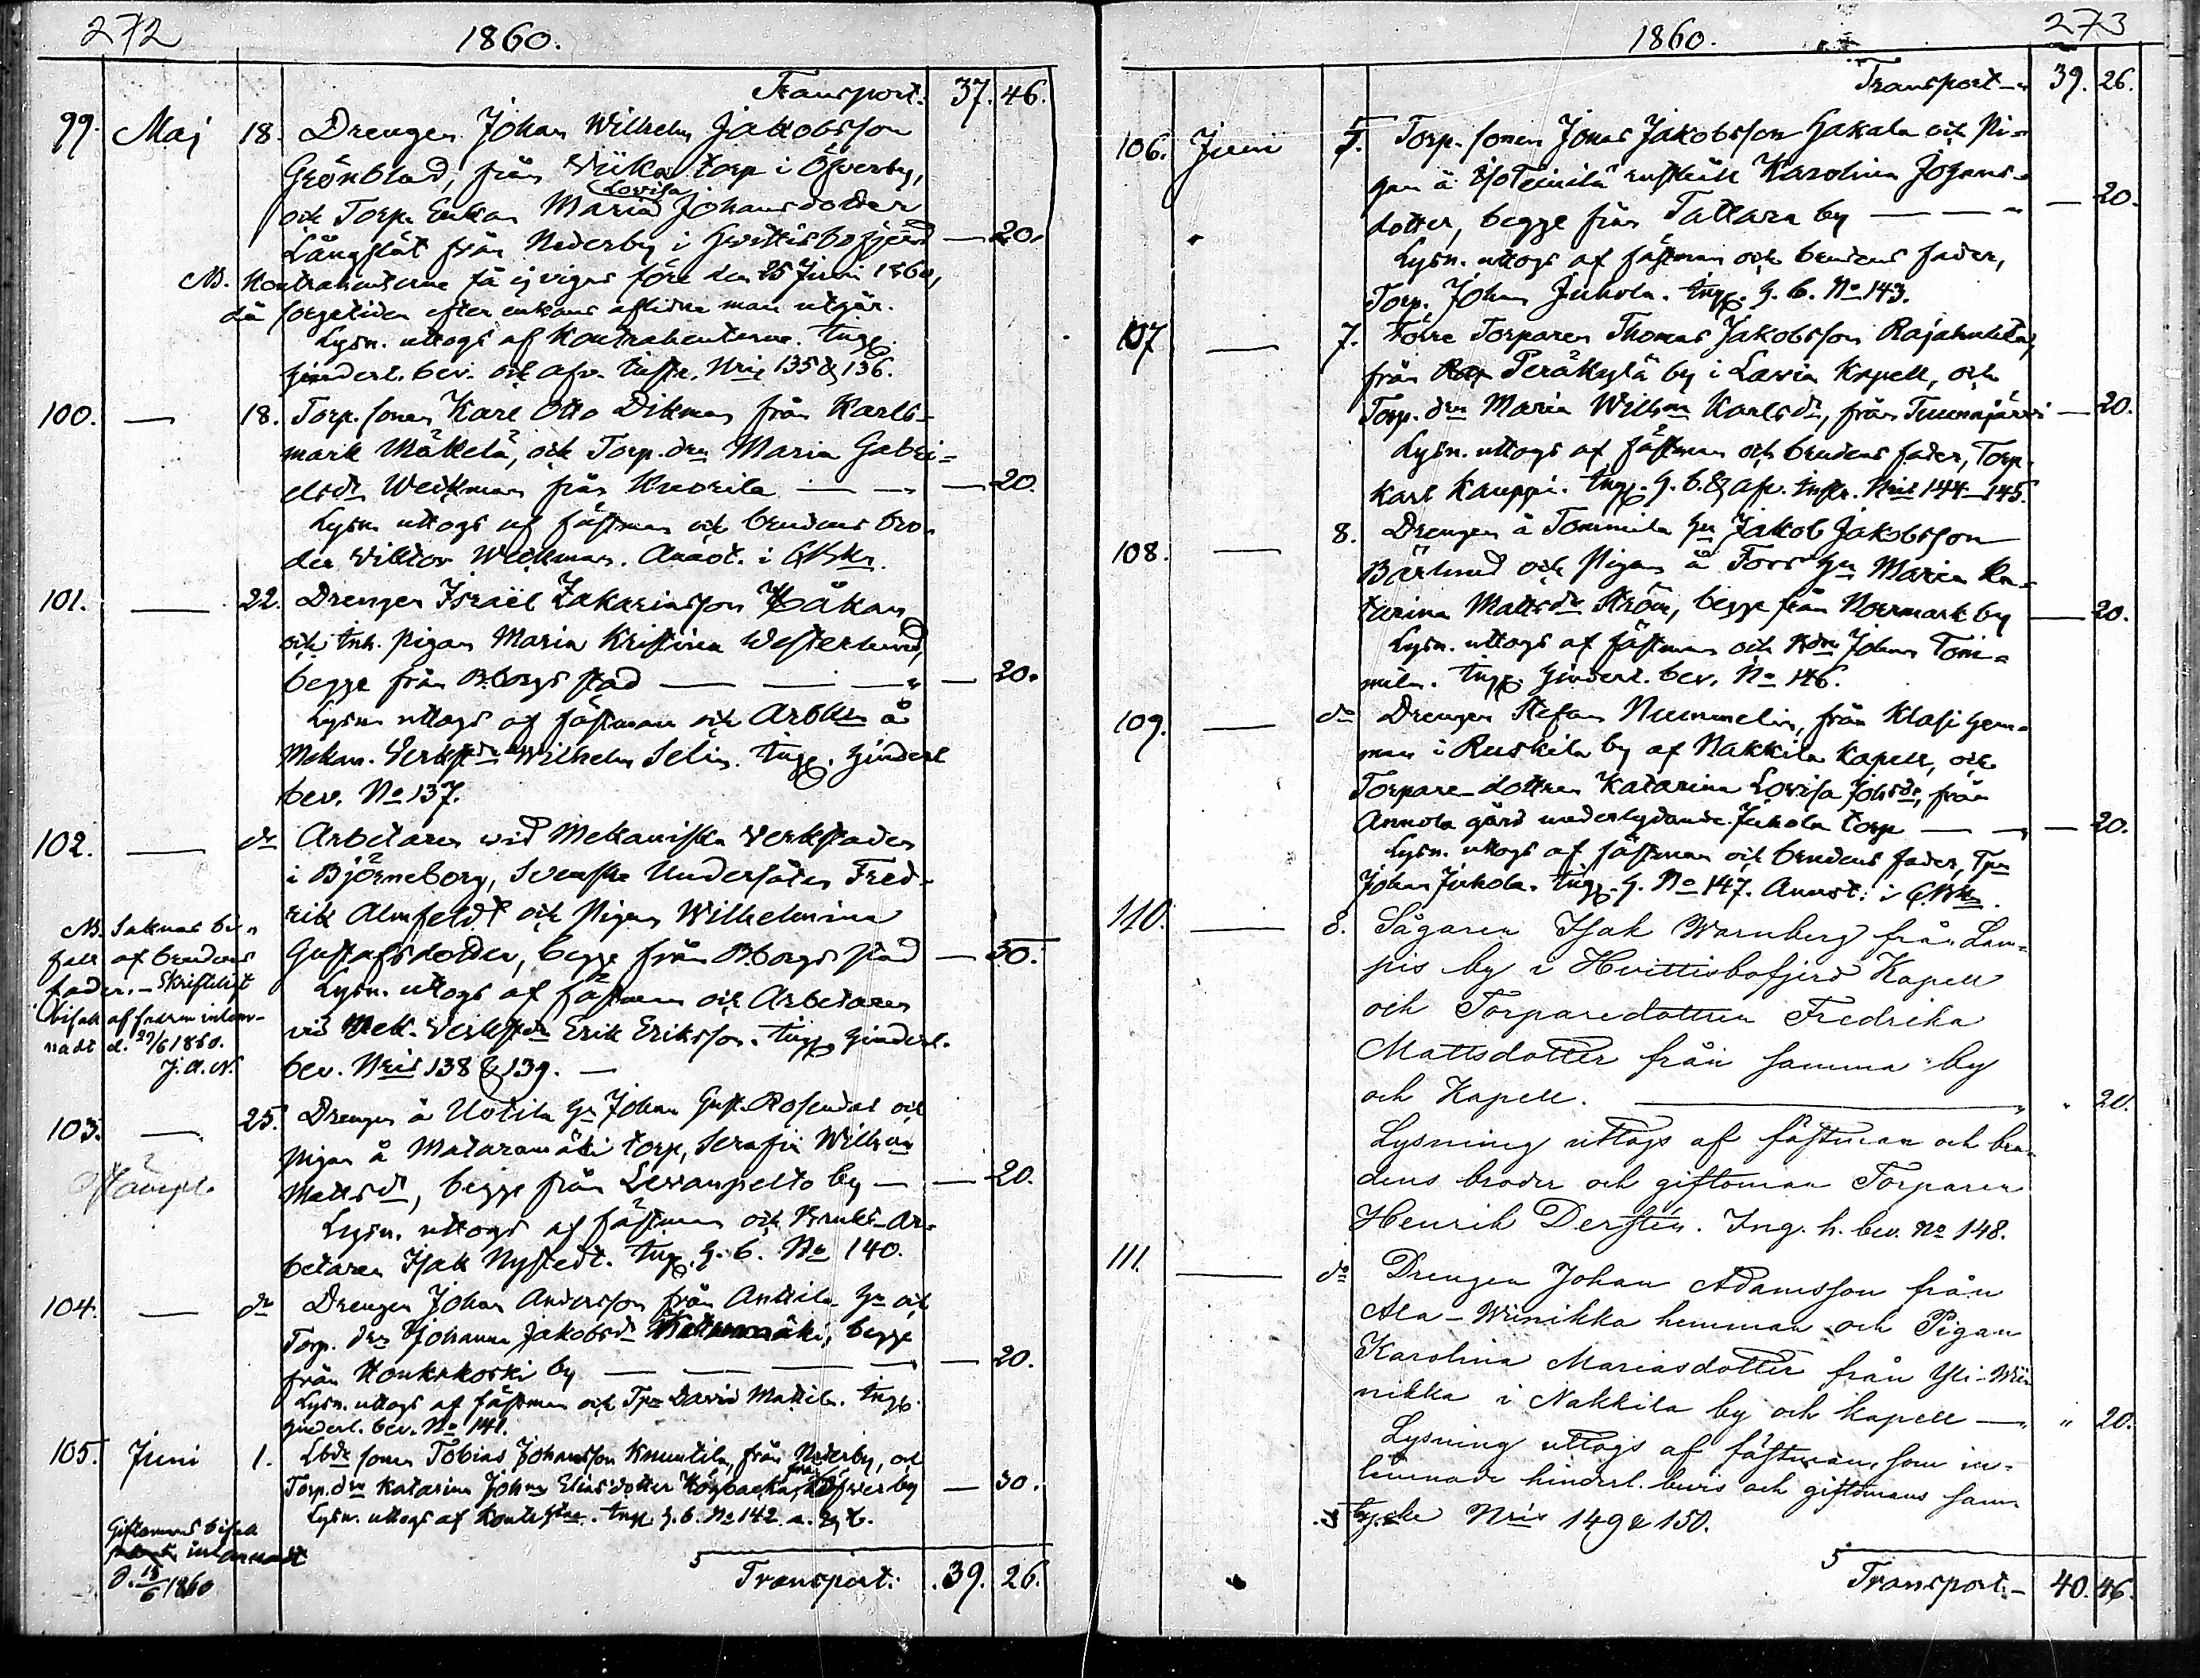 272
1860.
Transport. 37. 46.
99. Maj 18. Drengen Johan Wilhelm Jakobsson
Grönblad, från Wiika torp i Öfverby,
Lovisa
och Torp. Enkan Maria Johansdotter
Långslät från Nederby i Hvittisbofjerd — 20.
NB. Kontrahenterne få ej vigas före den 25 Juni 1860,
då sorgetiden efter enkans aflidne man utgår.
Lysn. uttogs af Kontrahenterne. Ingg.
hinderl. bev. och afv. Nris 135 & 136.
100. — 18. Torp. sonen Karl Otto Dikman från Karls-
mark Mäkelä, och Torp. drn Maria Gabri-
elsdr Weckman från Knorila — — — 20.
Lysn. uttogs af fästman och brudens bro-
der Viktor Weckman. Anaot. i
101. — 22. Drengen Israël Zakariasson Håkan
och Inh. Pigan Maria Kristina Westerlund,
begge från B:borgs stad — — — 20.
Lysn. uttogs af fästman och Arbtrn å
Mekan. Verkstdn Wilhelm Selin. Ingg. hinderl
bev. No 137.
102. — do Arbetaren vid Mekaniska Verkstaden
i Björneborg, Svenske Undersåten Fred-
rik Almfeldt och Pigan Wilhelmina
Gustafsdotter, begge från B:borgs stad — 30.
Lysn. uttogs af fästman och Arbetaren
vid Mek. Verkstdn Erik Eriksson. Ingg. hinderl.
bev. Nris 138 & 139. —
NB. Saknas bi-
fall af brudens
fader. — Skriftligt
bifall af fadren inläm-
nadt d. 29/6 1860.
J. A. N.
103. — 25. Drengen å Uotila hn Johan Gust. Rosendal och
Pigan å Mataramäki torp, Serafia Wilhma
Mattsdr, begge från Levanpelto by — — 20.
Lysn. uttogs af fästman och Bruks-Ar-
betaren Isak Nystedt. Ingg. h. b. No 140.
104. — do Drengen Johan Andersson från Anttila hn och
Torp. drn Johanna Jakobsdr begge
från Konkakoski by — — — — 20.
Lysn. uttogs af fästman och Tpn David Mattila. Ingg.
hinderl. bev. No 141.
105. Juni 1. Lbds sonen Tobias Johansson Knuutila, från Nederby, och
från
Torp. drn Katarina Johna Eliasdotter Köybacka, Öfverby — 30.
Lysn. uttogs af Kontrhtne. Ingg. h. b. No 142. a. & b.
Giftomans bifall
inlemnadt
d. 15/6 1860
Transport: 39. 26.
273
1860.
Transport — 39. 26.
106. Juni 5. Torp. sonen Jonas Jakobsson Hakala och Pi-
gan å IsoTeinilä rusthåll Karolina Johans-
dotter, begge från Tattara by — — — 20.
Lysn. uttogs af fästman och brudens fader,
Torp. Johan Juhola. Ingg. h. b. No 143.
107 — 7. Förre Torparen Thomas Jakobsson Rajahuhta,
från Peräkylä by i Lavia Kapell, och
Torp. drn Maria Wilhma Karlsdr, från Tuunajärvi — 20.
Lysn. uttogs af fästman och brudens fader, Torp.
Karl Kauppi. Ingg. h. b. & afv. Nris 144–145.
108. — 8. Drengen å Tommila hn Jakob Jakobsson
Bärlund och Pigan å Fors hn Maria Ka-
tarina Mattsdr Ström, begge från Norrmark by — 20.
Lysn. uttogs af fästman och Johan Tom-
mila. Ingg. hinderl. bev. No 146.
109. — do Drengen Stefan Nummelin, från Klasi hem-
man i Ruskila by af Nakkila Kapell, och
Torpare-dottren Katarina Lovisa Johsdr, från
Annola gård underlydande Juhola torp — — — 20.
Lysn. uttogs af fästman och brudens fader, Tpn
Johan Juhola. Ingg. h. No 147. Annot. i
110. — 8. Sågaren Isak Warnberg från Lam-
pis by i Hvittisbofjerd Kapell
och Torparedottren Fredrika
Mattsdotter från samma by
och Kapell. — 20.
Lysning uttogs af fästman och bru-
dens broder och giftoman Torparen
Henrik Dersten. Ing. h. bev. No 148.
111. — do Drengen Johan Adamsson från
Ala-Wiinikka hemman och Pigan
Karolina Mariasdotter från Yli-Wii-
nikka i Nakkila by och kapell — " 20.
Lysning uttogs af fästman, som in-
lemnade hinderl. bevis och giftomans sam-
tycke Nris 149 & 150.
Transport. — 40. 46.